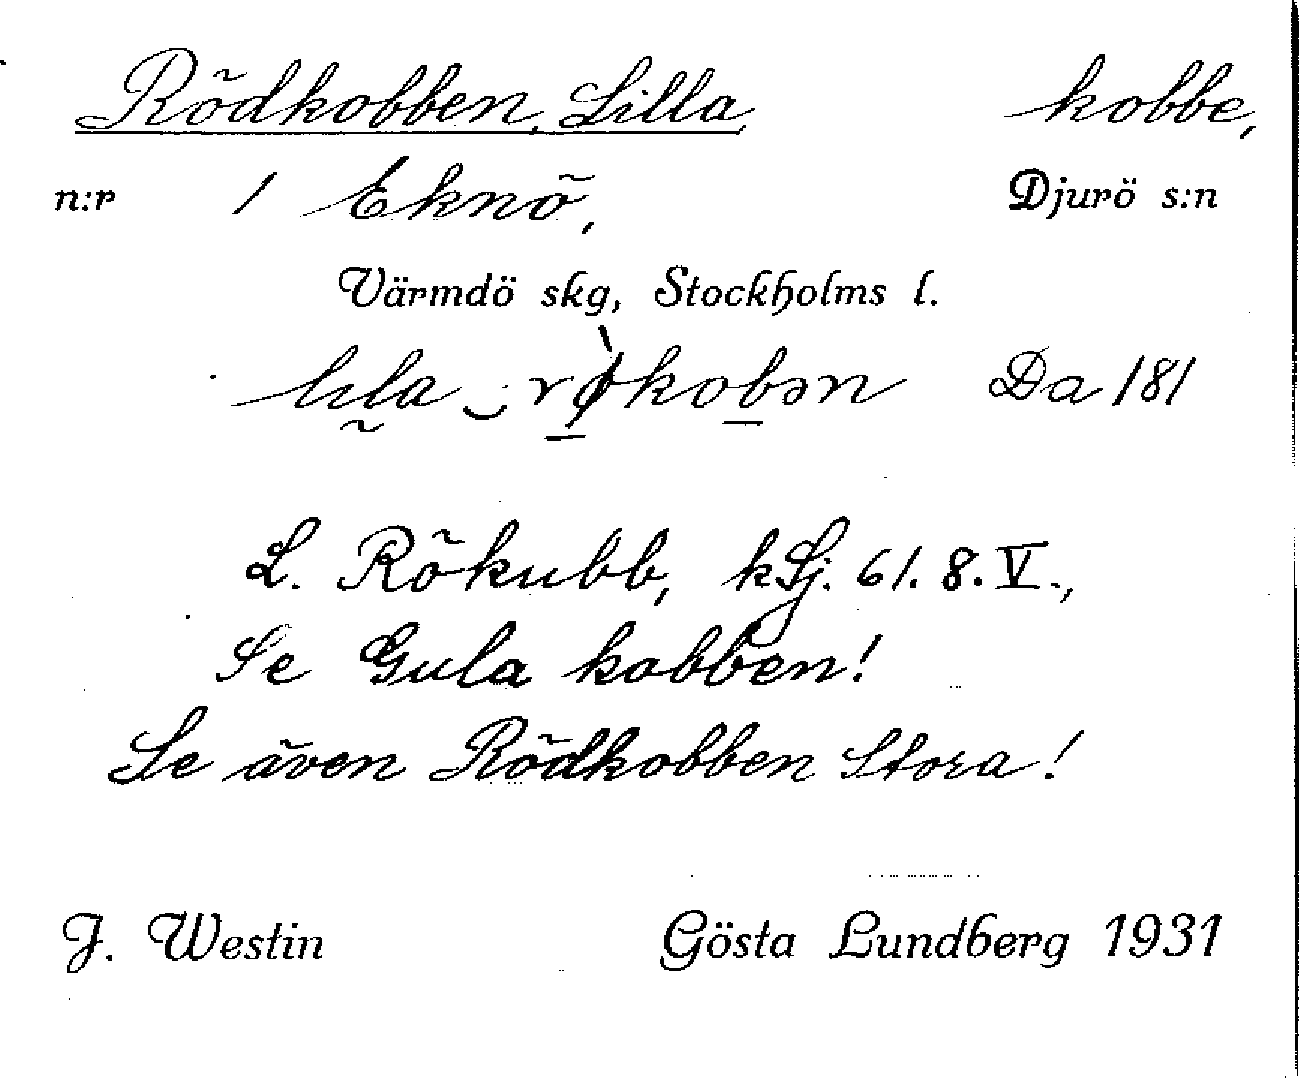 Rödkobben, Lilla, kobbe,
n:r 1 Eknö, Djurö s:n
Värmdö skg, Stockholms l.
Da 181
L. Rökubb, kSj. 61. 8. V.,
Se Gula kobben!
Se även Rödkobben Stora!
J. Westin Gösta Lundberg 1931